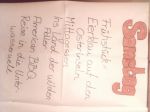 Samstag
Frühstück
Eierlauf auf den
Osterinseln
Mittagessen
Ins Land der wilden
Füller
American BBQ
Reise in die Unter
wasserwelt